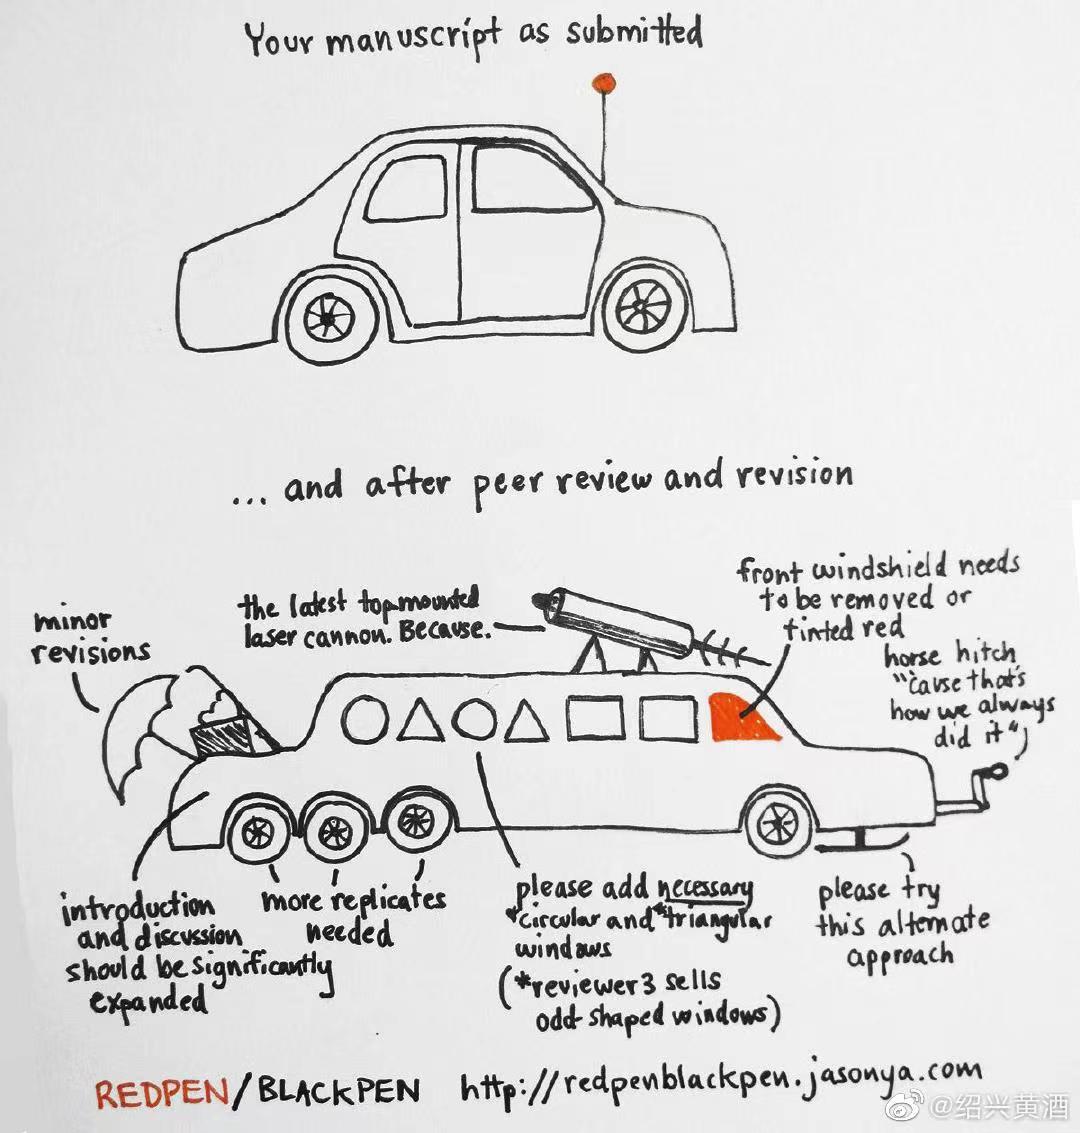 Your manuscript as submitted
... and after peer review and revision
minor
revisions
the latest top-mounted
laser cannon. Because.
front windshield needs
to be removed or
tinted red
horse hitch
"'cause that's
how we always
did it"
introduction
and discussion
should be significantly
expanded
more replicates
needed
please add necessary
*circular and *triangular
windows
(*reviewer 3 sells
odd-shaped windows)
please try
this alternate
approach
REDPEN/BLACKPEN http://redpenblackpen.jasonya.com
@绍兴黄酒